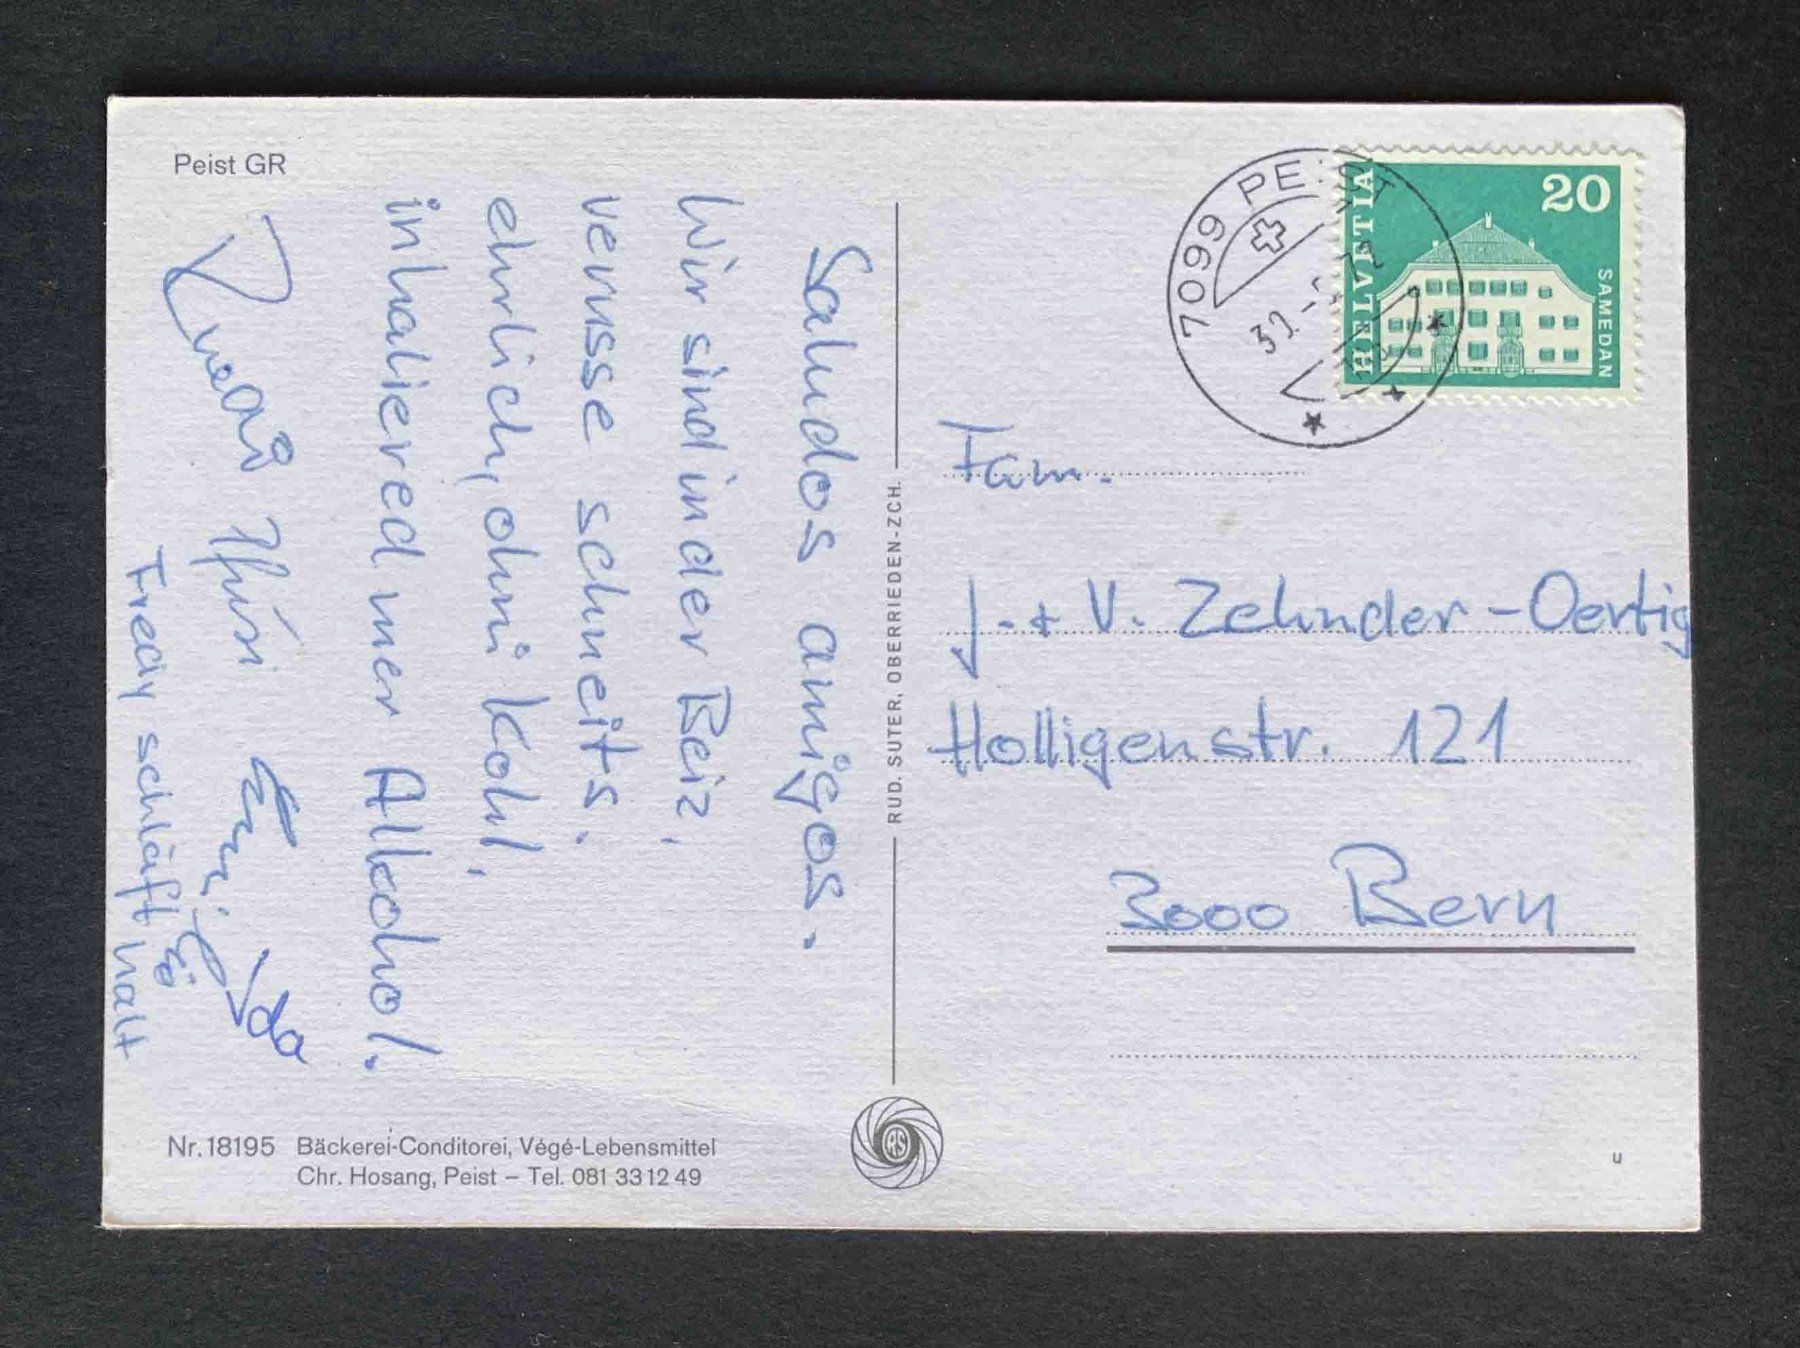 Peist GR
Saludos amigos.
Wir sind in der Beiz,
verusse schneits.
ehrlich, ohni Kohl,
inhaliered mer Alkohol.
Ida
Fredy schläft halt
Nr. 18195 Bäckerei-Conditorei, Végé-Lebensmittel
Chr. Hosang, Peist – Tel. 081 33 12 49
RUD. SUTER, OBERRIEDEN-ZCH.
RS
7099 PEIST
HELVETIA
20
SAMEDAN
Fam.
J. + V. Zehnder-Oertig
Holligenstr. 121
3000 Bern
u